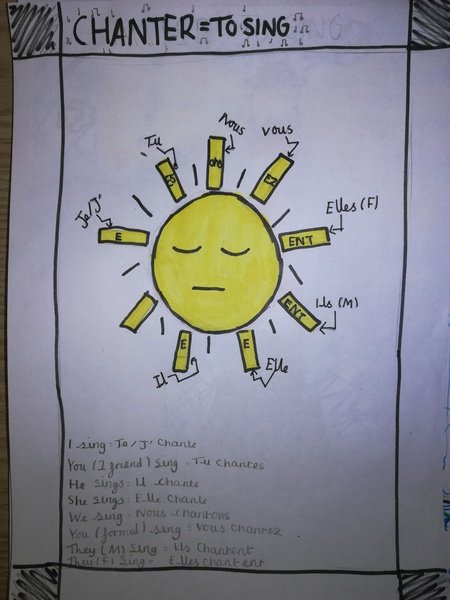 CHANTER = TO SING
Nous
Vous
Tu
ES
ons
EZ
Je/J'
E
Elles (F)
ENT
Ils (M)
ENT
E
E
Il
Elle
I sing : Je/J' Chante
You (1 friend) Sing : Tu Chantes
He Sings : Il Chante
She Sings : Elle Chante
We sing : Nous Chantons
You (formal) sing : Vous Chantez
They (M) Sing = Ils Chantent
They (F) Sing = Elles chantent